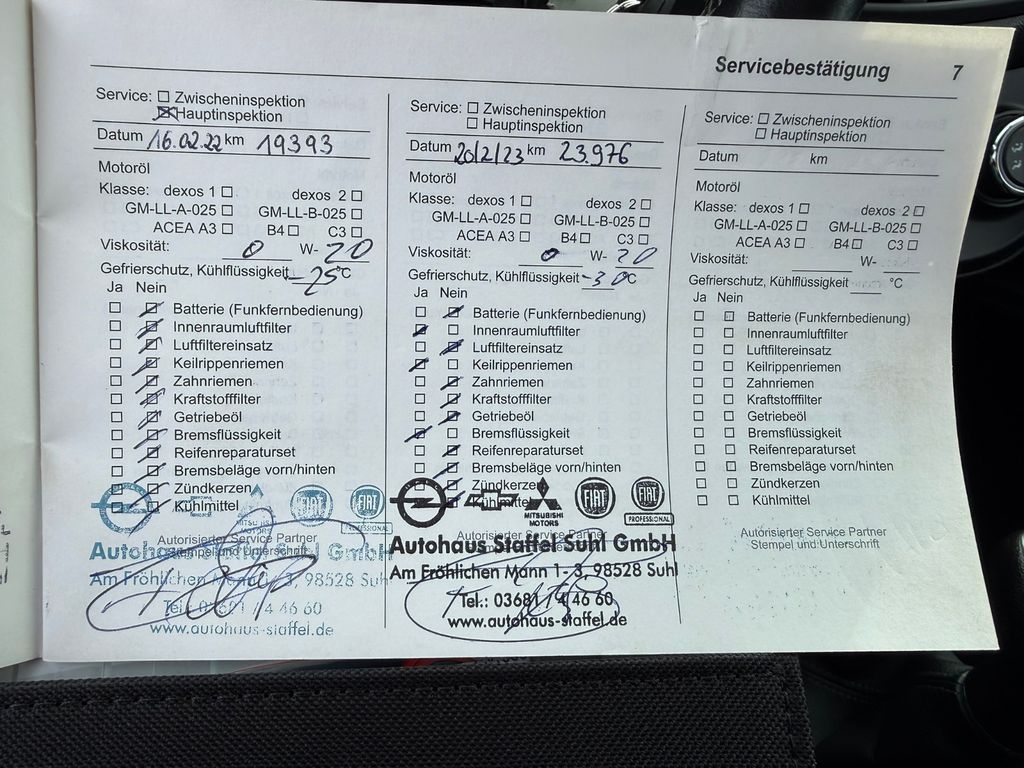 Servicebestätigung 7
Service: ☐ Zwischeninspektion
☒ Hauptinspektion
Datum 16.02.22 km 19393
Motoröl
Klasse: dexos 1 ☐ dexos 2 ☐
GM-LL-A-025 ☐ GM-LL-B-025 ☐
ACEA A3 ☐ B4 ☐ C3 ☐
Viskosität: 0 W- 20
Gefrierschutz, Kühlflüssigkeit -25 °C
Ja Nein
☐ ☒ Batterie (Funkfernbedienung)
☐ ☒ Innenraumluftfilter
☐ ☒ Luftfiltereinsatz
☐ ☒ Keilrippenriemen
☐ ☒ Zahnriemen
☐ ☒ Kraftstofffilter
☐ ☒ Getriebeöl
☐ ☒ Bremsflüssigkeit
☐ ☒ Reifenreparaturset
☐ ☒ Bremsbeläge vorn/hinten
☐ ☒ Zündkerzen
☐ ☒ Kühlmittel
MOTORS
FIAT
FIAT
PROFESSIONAL
Autorisierter Service Partner
Stempel und Unterschrift
Autohaus Staffel Suhl GmbH
Am Fröhlichen Mann 1- 3, 98528 Suhl
Tel.: 03681 / 4 46 60
www.autohaus-staffel.de
Service: ☐ Zwischeninspektion
☐ Hauptinspektion
Datum 20/2/23 km 23.976
Motoröl
Klasse: dexos 1 ☐ dexos 2 ☐
GM-LL-A-025 ☐ GM-LL-B-025 ☐
ACEA A3 ☐ B4 ☐ C3 ☐
Viskosität: 0 W- 20
Gefrierschutz, Kühlflüssigkeit -30 °C
Ja Nein
☐ ☒ Batterie (Funkfernbedienung)
☒ ☐ Innenraumluftfilter
☐ ☒ Luftfiltereinsatz
☒ ☐ Keilrippenriemen
☐ ☒ Zahnriemen
☐ ☒ Kraftstofffilter
☐ ☒ Getriebeöl
☒ ☐ Bremsflüssigkeit
☐ ☒ Reifenreparaturset
☐ ☒ Bremsbeläge vorn/hinten
☐ ☒ Zündkerzen
Kühlmittel
MITSUBISHI
MOTORS
FIAT
FIAT
PROFESSIONAL
Autorisierter Service Partner
Autohaus Staffel Suhl GmbH
Am Fröhlichen Mann 1- 3, 98528 Suhl
Tel.: 03681 / 4 46 60
www.autohaus-staffel.de
Service: ☐ Zwischeninspektion
☐ Hauptinspektion
Datum km
Motoröl
Klasse: dexos 1 ☐ dexos 2 ☐
GM-LL-A-025 ☐ GM-LL-B-025 ☐
ACEA A3 ☐ B4 ☐ C3 ☐
Viskosität: W-
Gefrierschutz, Kühlflüssigkeit °C
Ja Nein
☐ ☐ Batterie (Funkfernbedienung)
☐ ☐ Innenraumluftfilter
☐ ☐ Luftfiltereinsatz
☐ ☐ Keilrippenriemen
☐ ☐ Zahnriemen
☐ ☐ Kraftstofffilter
☐ ☐ Getriebeöl
☐ ☐ Bremsflüssigkeit
☐ ☐ Reifenreparaturset
☐ ☐ Bremsbeläge vorn/hinten
☐ ☐ Zündkerzen
☐ ☐ Kühlmittel
Autorisierter Service Partner
Stempel und Unterschrift